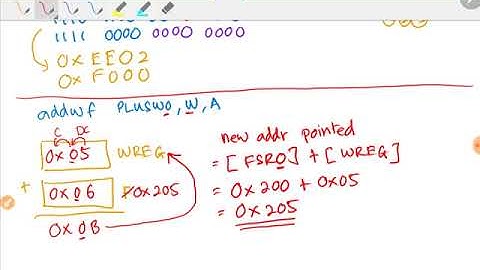 1111 0000 0000 0000
0xEE02
0xF000
addwf PLUSW0, W, A
C DC
0x05 WREG
+ 0x06 0x205
0x0B
new addr pointed
= [FSR0] + [WREG]
= 0x200 + 0x05
= 0x205